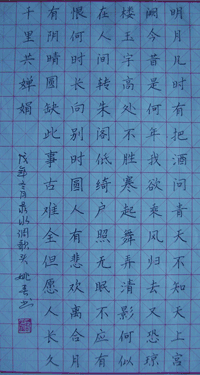 明月几时有把酒问青天不知天上宫
阙今昔是何年我欲乘风归去又恐琼
楼玉宇高处不胜寒起舞弄清影何似
在人间转朱阁低绮户照无眠不应有
恨何事长向别时圆人有悲欢离合月
有阴晴圆缺此事古难全但愿人长久
千里共婵娟
水调歌头